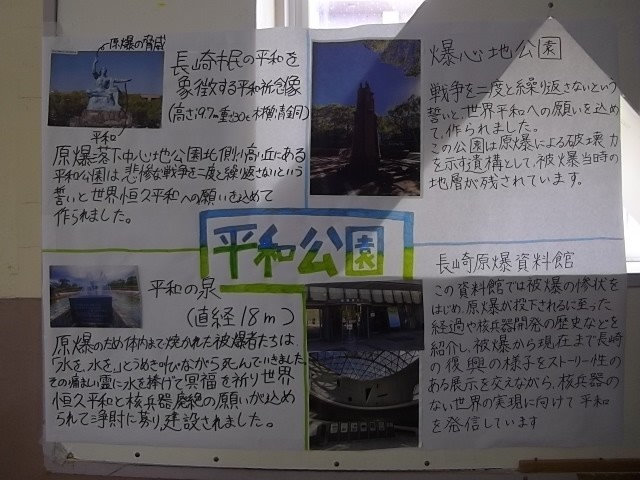 原爆の脅威
長崎市民の平和を
象徴する平和祈念像
(高さ9.7m重さ30t 材質青銅)
平和
原爆落下中心地公園北側小高い丘にある
平和公園は、悲惨な戦争を二度と繰り返さないという
誓いと世界恒久平和への願いを込めて
作られました。
爆心地公園
戦争を二度と繰り返さないという
誓いと、世界平和への願いを込め
て、作られました。
この公園は原爆による破壊力
を示す遺構として、被爆当時の
地層が残されています。
平和公園
平和の泉
(直経18m)
原爆のため体内まで焼かれた被爆者たちは
「水を、水を」とうめき叫びながら死んでいきました
その痛ましい霊に水を捧げて冥福を祈り世界
恒久平和と核兵器廃絶の願いが込め
られて浄財に募り建設されました。
長崎原爆資料館
この資料館では被爆の惨状を
はじめ、原爆が投下されるに至った
経過や核兵器開発の歴史などを
紹介し、被爆から現在まで長崎
の復興の様子をストーリー性の
ある展示を交えながら、核兵器の
ない世界の実現に向けて平和
を発信しています